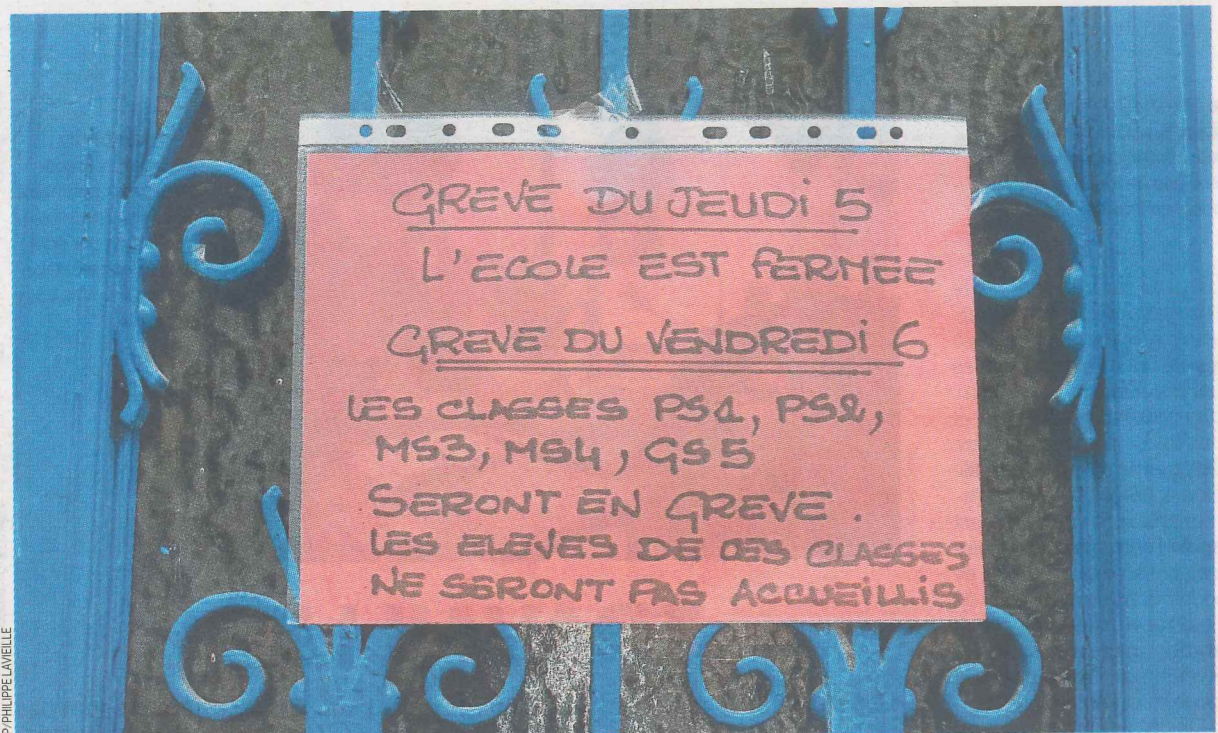 GREVE DU JEUDi 5
L'ECOLE EST FERMEE
GREVE DU VENDREDi 6
LES CLASSES PS1, PS2,
MS3, MS4, GS5
SERONT EN GREVE.
LES ELEVES DE CES CLASSES
NE SERONT PAS ACCUEiLLiS
P/PHILIPPE LAVIEILLE